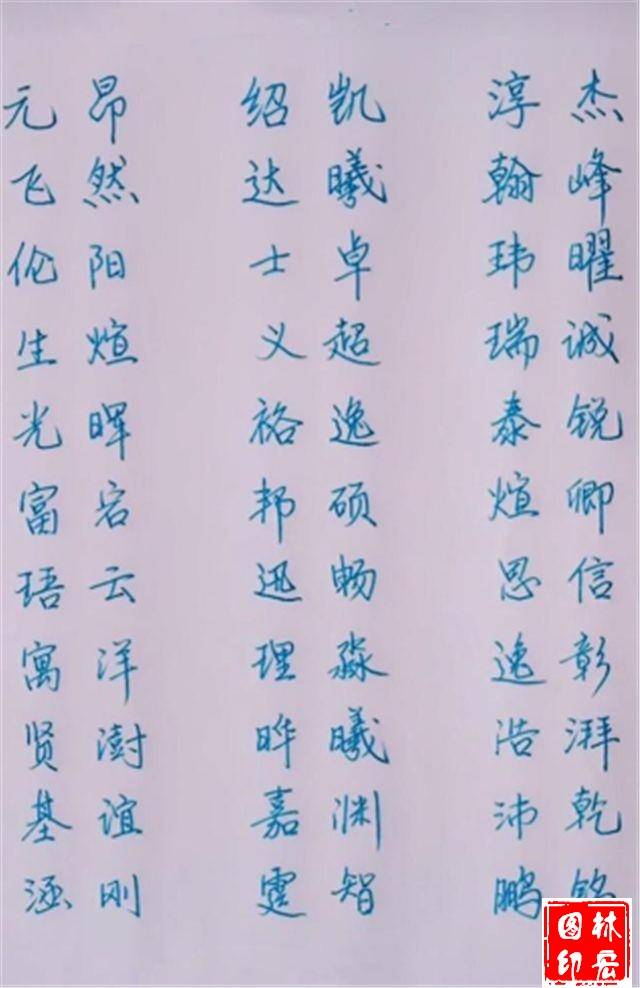 元昂 绍凯 淳杰
飞然 达曦 翰峰
伦阳 士卓 玮曜
生煊 义超 瑞诚
光晖 裕逸 泰锐
富宕 邦硕 煊卿
珸云 迅畅 思信
寓洋 理淼 逸彰
贤澍 晔曦 浩湃
基谊 嘉渊 沛乾
涵刚 霆智 鹏
林宏图印